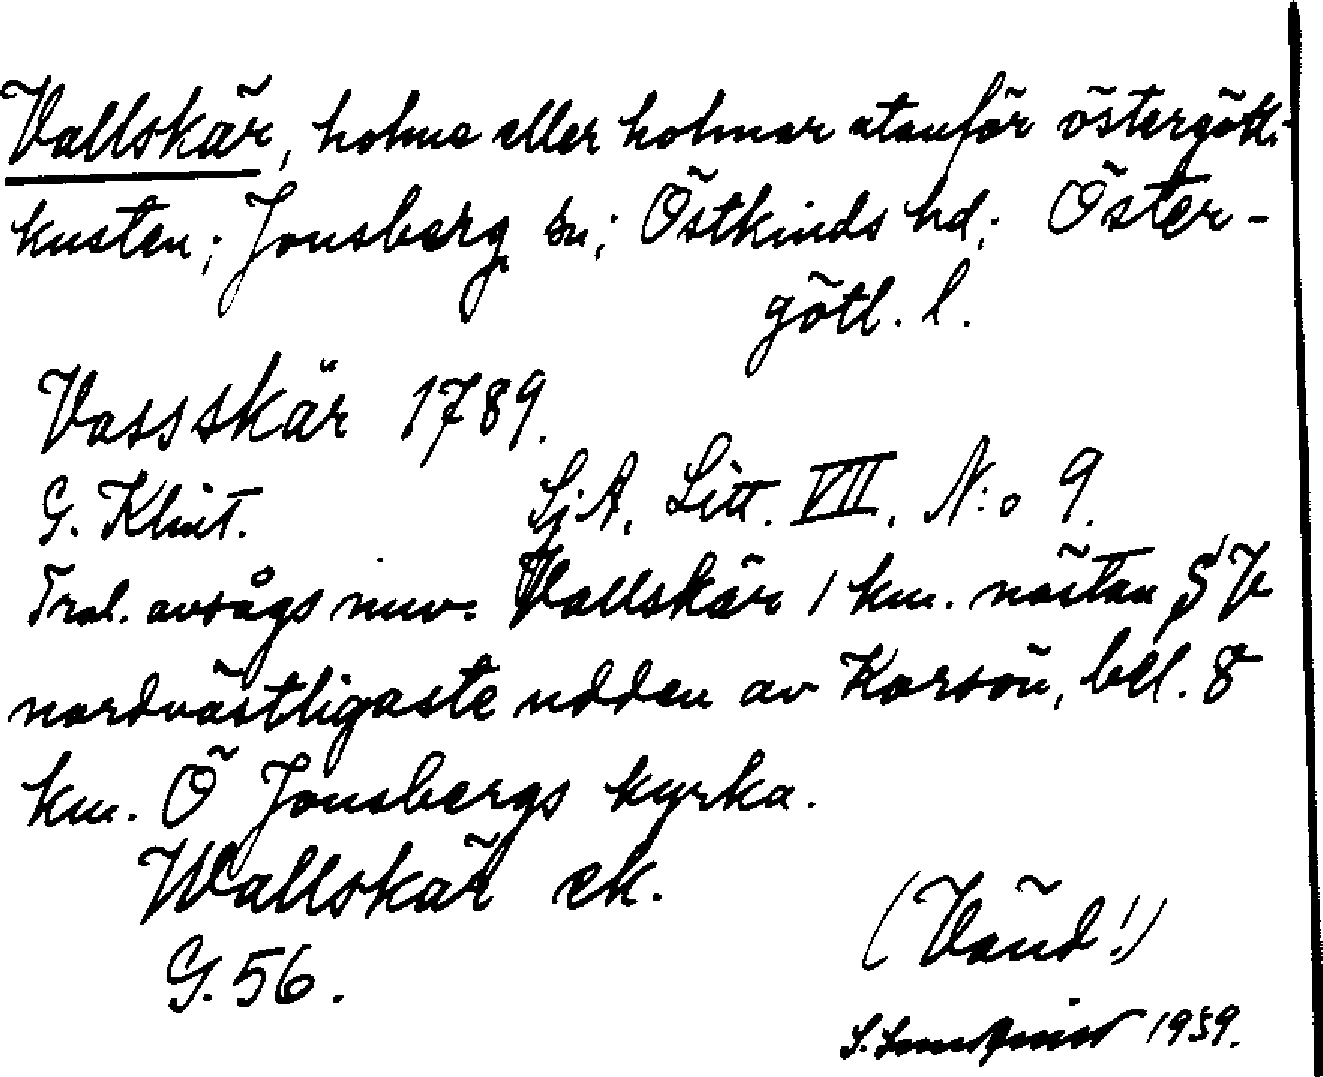 Vallskär, holme eller holmar utanför östergötl.-
kusten; Jonsberg sn; Östkinds hd; Öster-
götl. l.
Vassskär 1789.
G. Klint. SjA, Litt. VII, N:o 9.
Trol. avsågs nuv. Vallskär 1 km. nästan SV
nordvästligaste udden av Korsön, bel. 8
km. Ö Jonsbergs kyrka.
Wallskär ek.
G. 56.
(Vänd!)
S. 1959.